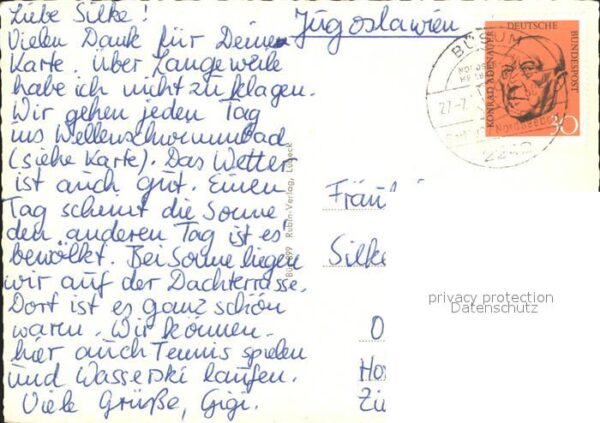 Liebe Silke!
Jugoslawien
Vielen Dank für Deine
Karte. Über Langeweile
habe ich nicht zu klagen.
Wir gehen jeden Tag
ins Wellenschwimmbad
(siehe Karte). Das Wetter
ist auch gut. Einen
Tag scheint die Sonne
den anderen Tag ist es
bewölkt. Bei Sonne liegen
wir auf der Dachterrasse.
Dort ist es ganz schön
warm. Wir können
hier auch Tennis spielen
und Wasserski laufen.
Viele Grüße, Gigi.
Rubin-Verlag, Lübeck
Silke
privacy protection
Datenschutz
DEUTSCHE
BUNDESPOST
KONRAD ADENAUER
30
BÜSUM
2242